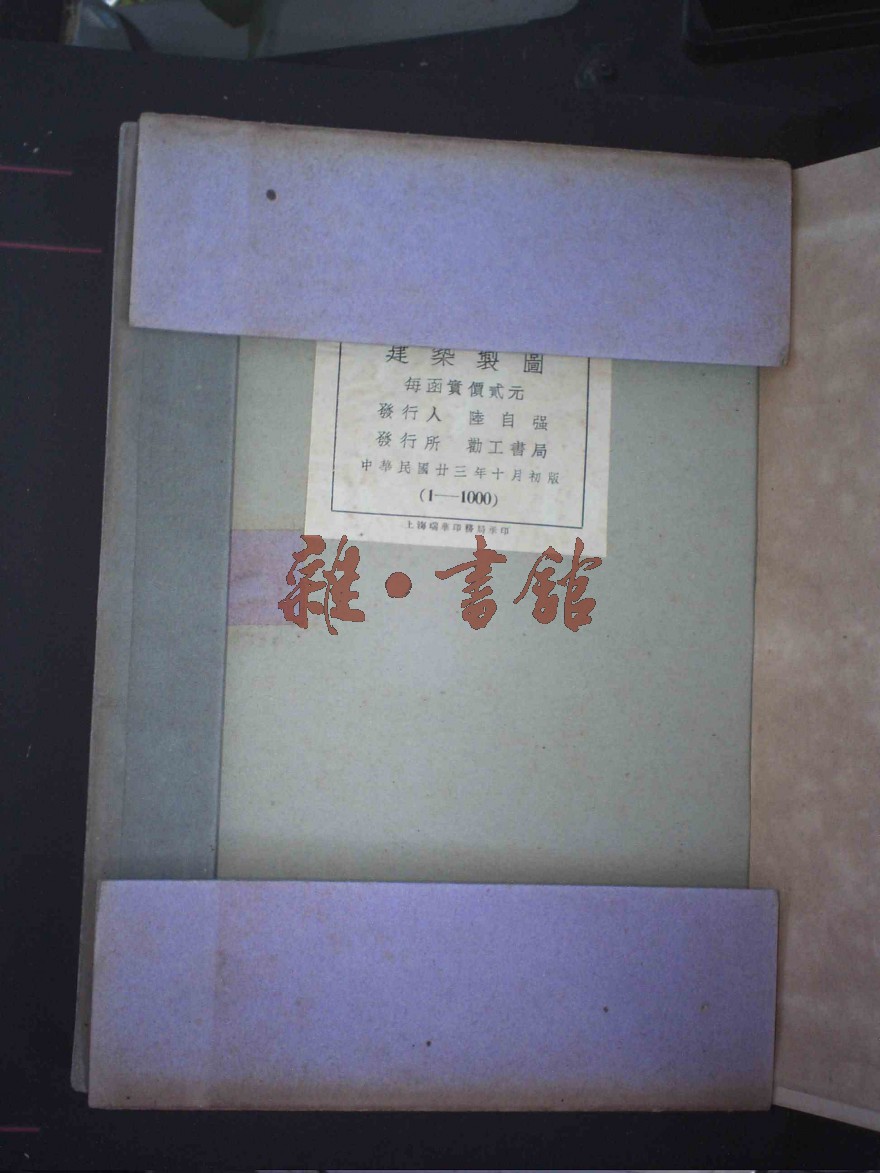 建築製圖
每函實價貳元
發行人 陸自强
發行所 勸工書局
中華民國廿三年十月初版
(1——1000)
上海瑞華印務局承印
雜·書館